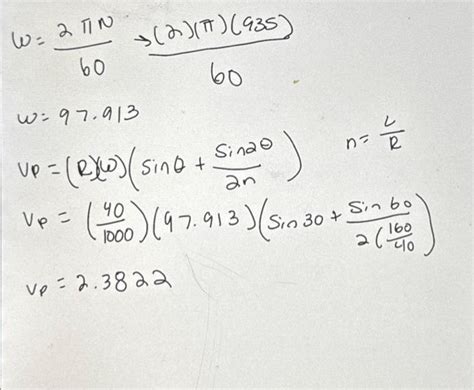 ω = 2πN/60 → (2)(π)(935)/60
ω = 97.913
VP = (R)(ω)(sinθ + sin2θ/2n) n = L/R
VP = (40/1000)(97.913)(sin 30 + sin 60/2(160/40))
VP = 2.3822